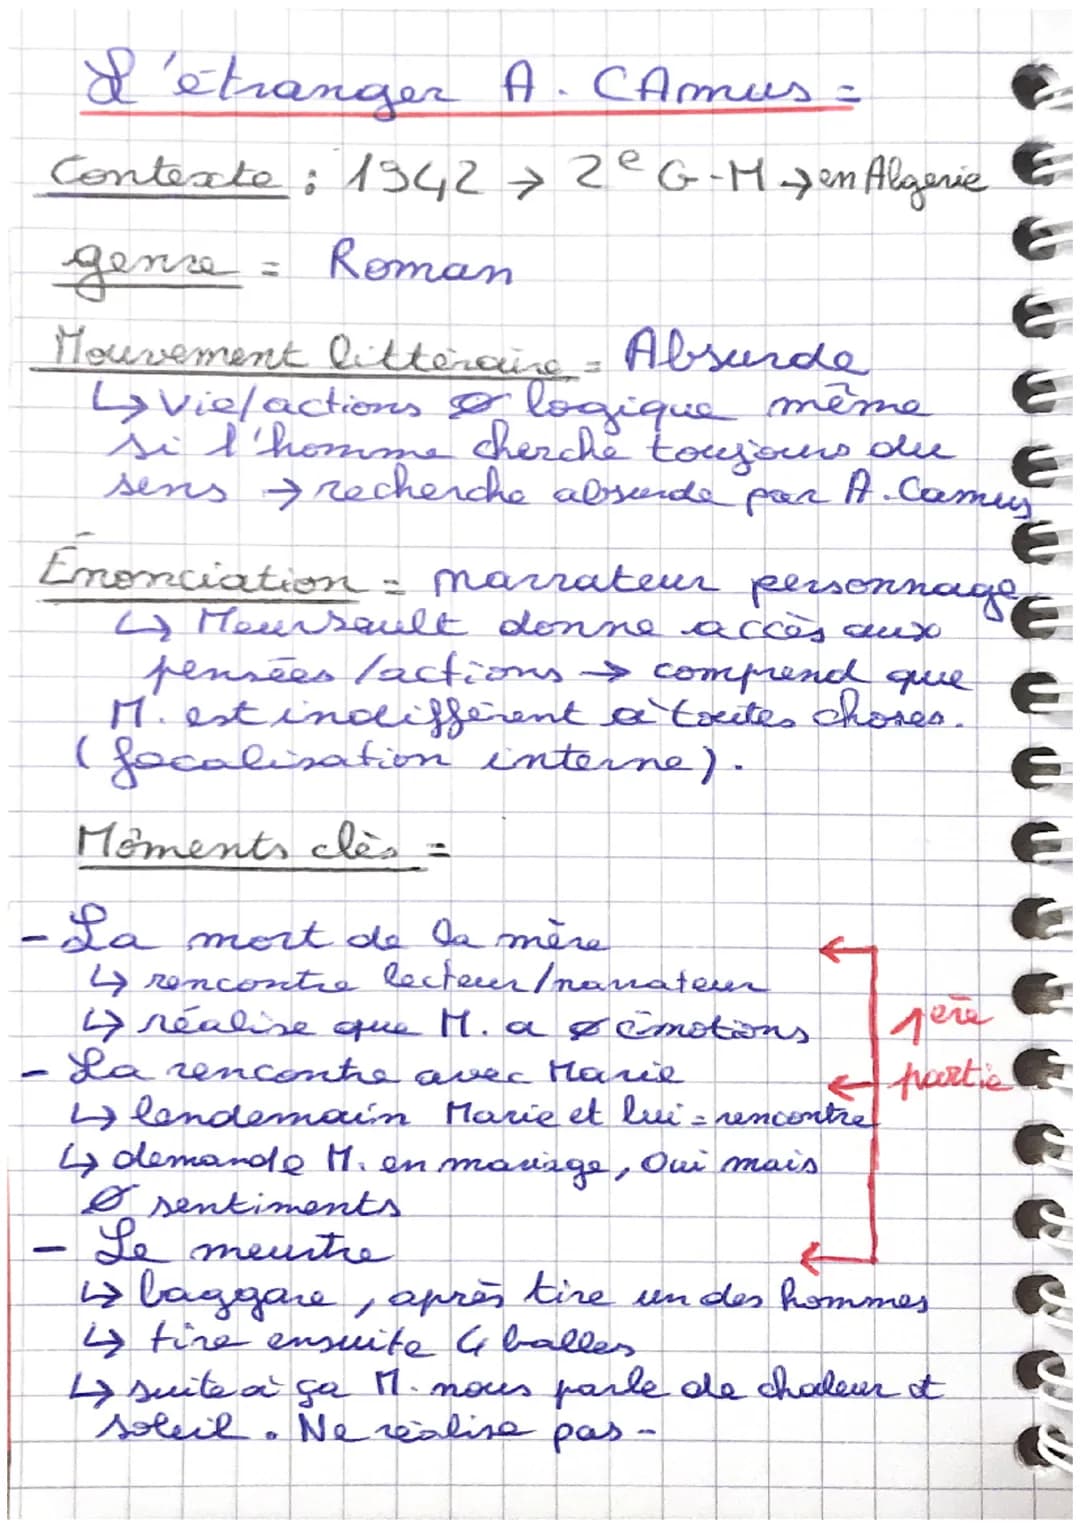 L'étranger A. CAmus =
Contexte : 1942 → 2e G-M → en Algerie
genre = Roman
Mouvement littéraire = Absurde
↳ Vie/actions Ø logique même
si l'homme cherche toujours du
sens → recherche absurde par A. Camus
Énonciation = narrateur personnage
↳ Meursault donne accès aux
pensées /actions → comprend que
M. est indifférent à toutes choses.
(focalisation interne).
Moments clès =
- La mort de la mère
↳ rencontre lecteur/narrateur
↳ réalise que M. a Ø émotions
1ère
- La rencontre avec Marie
partie
↳ lendemain Marie et lui = rencontre
↳ demande M. en mariage, Oui mais
Ø sentiments
- Le meurtre
↳ baggare, après tire un des hommes
↳ tire ensuite 4 balles
↳ suite à ça M. nous parle de chaleur et
soleil. Ne réalise pas -